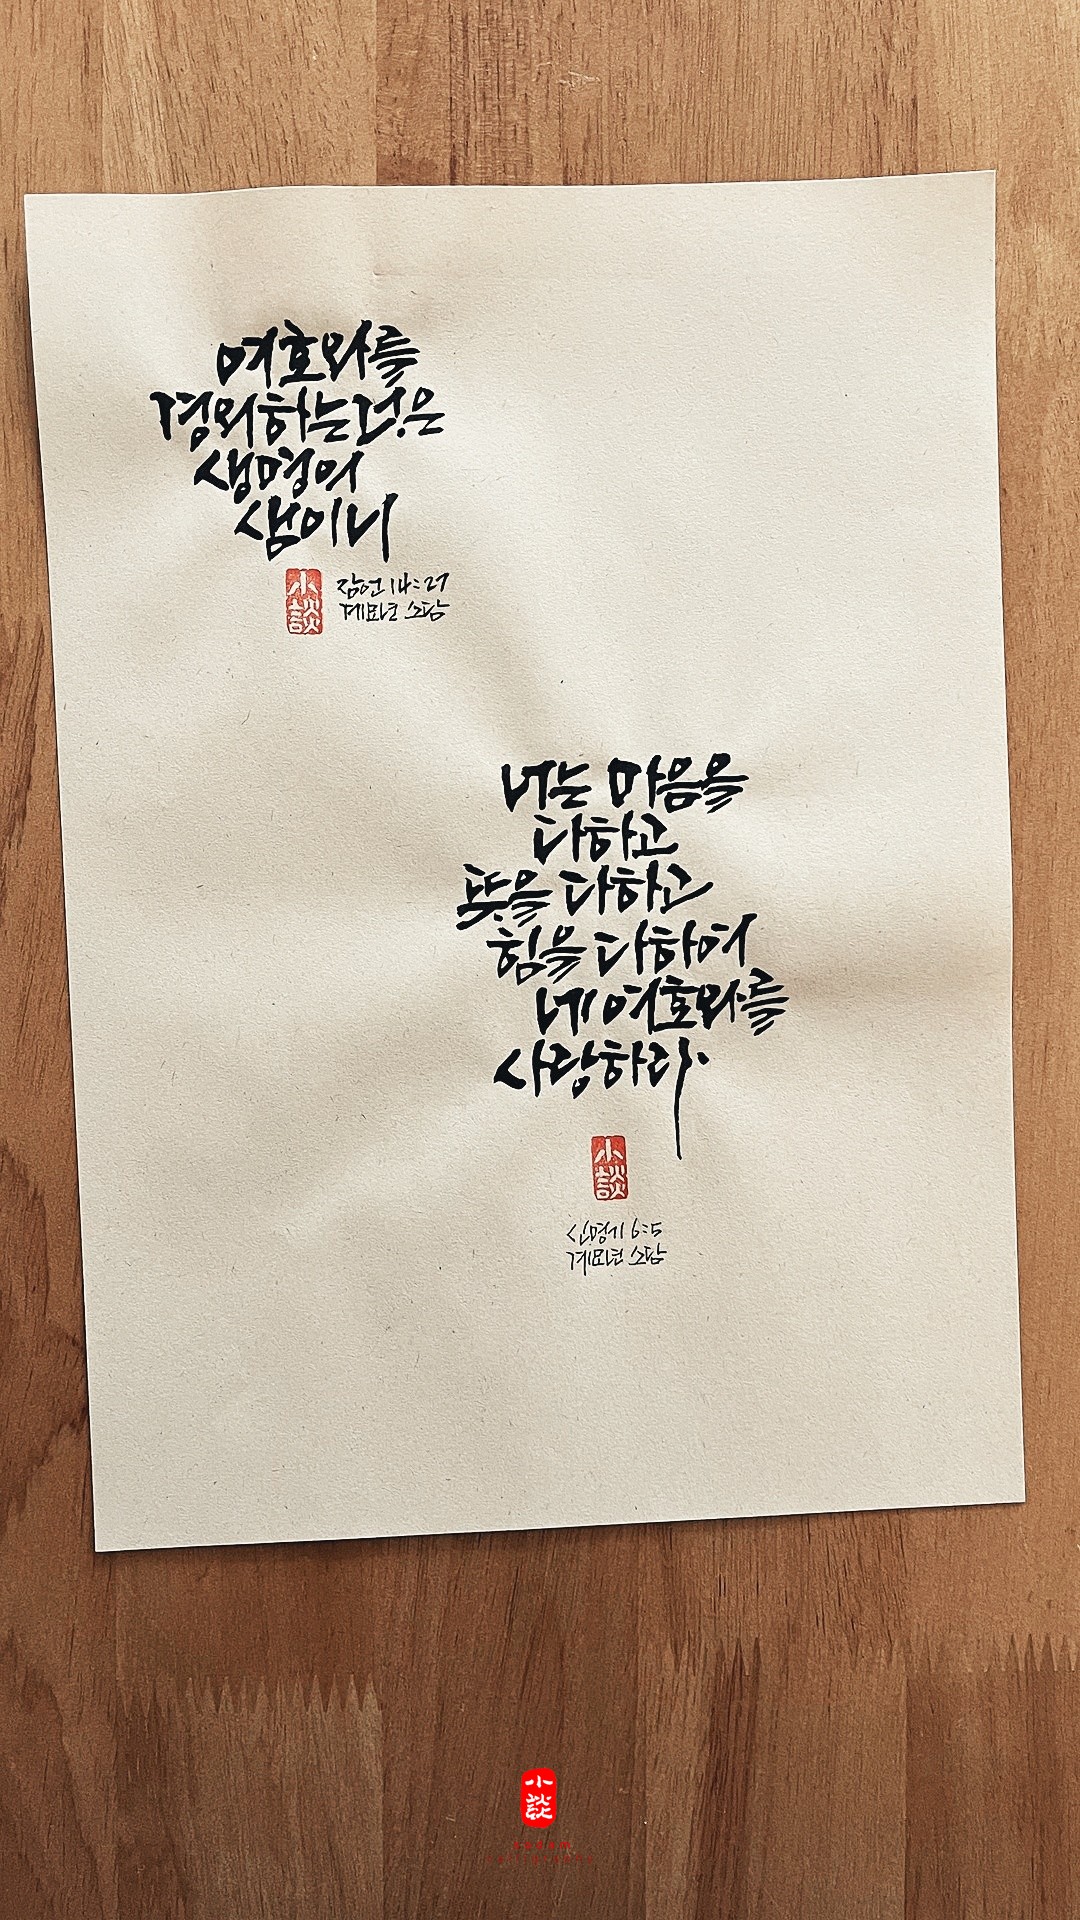 여호와를
경외하는것은
생명의
샘이니
小談
잠언 14:27
계묘년 소담
너는 마음을
다하고
뜻을 다하고
힘을 다하여
네 여호와를
사랑하라.
小談
신명기 6:5
계묘년 소담
小談